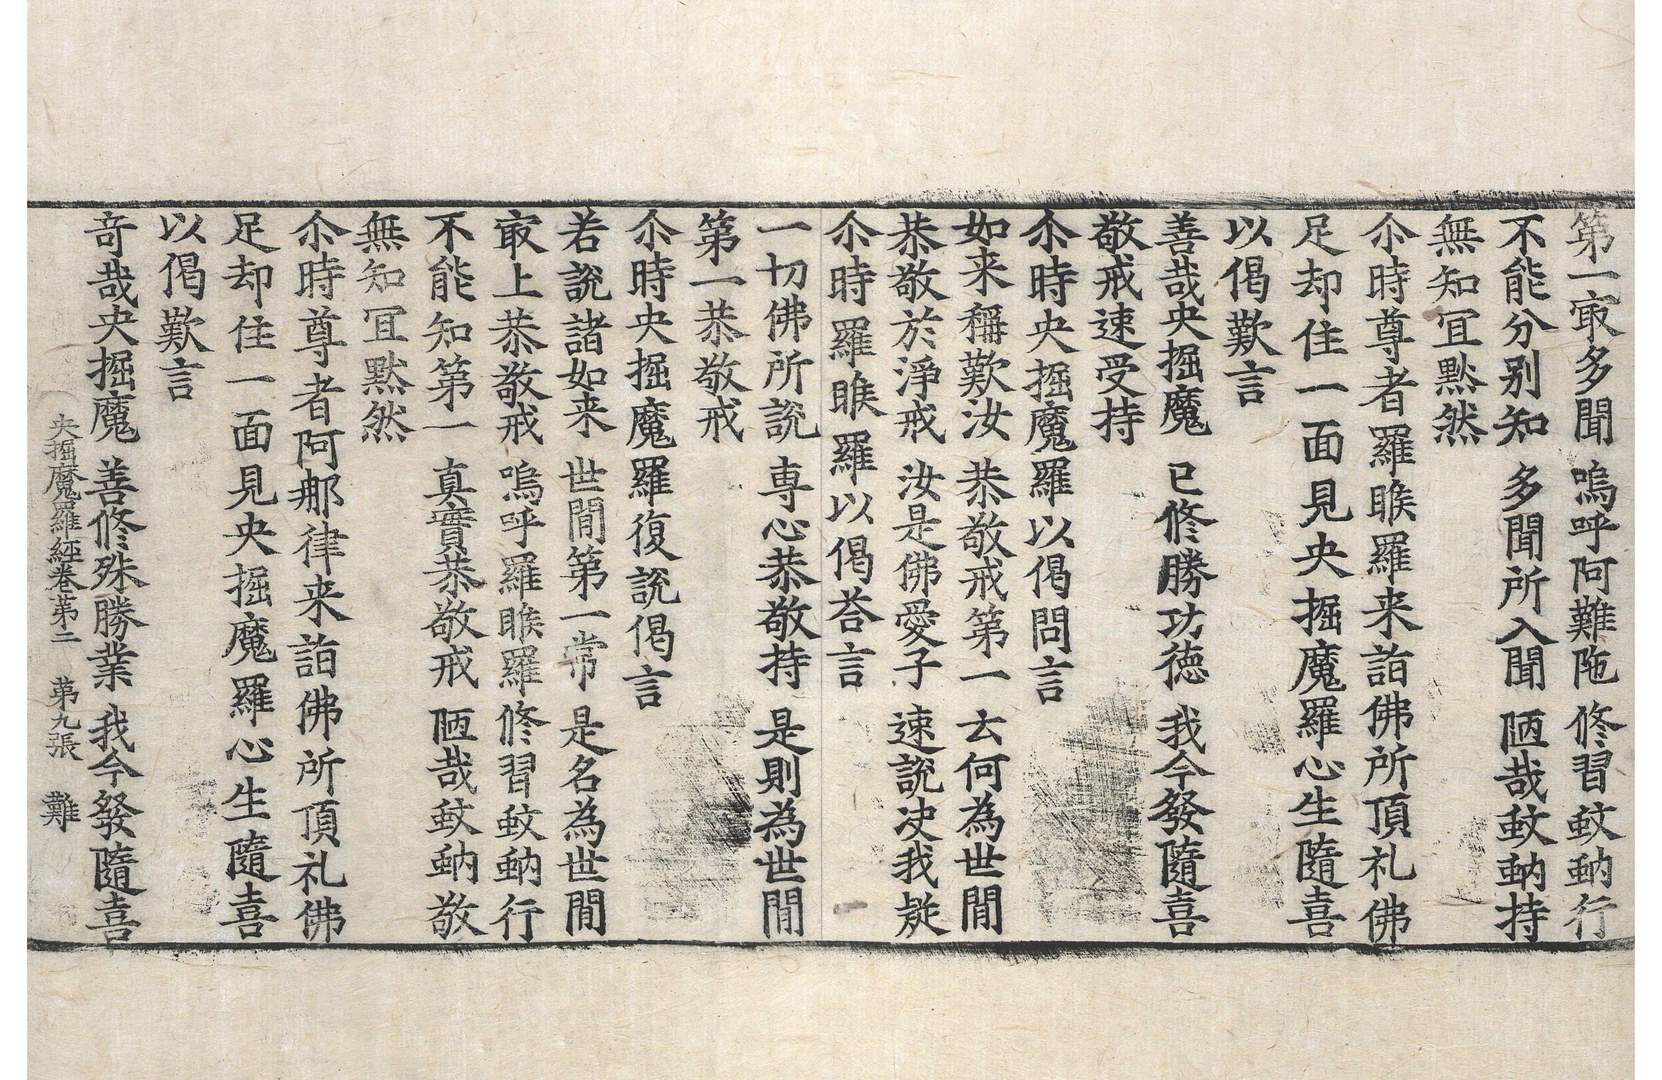 第一㝡多聞 嗚呼阿難陁 修習蚊蚋行
不能分别知 多聞所入聞 陋哉蚊蚋持
無知冝黙然
尒時尊者羅睺羅来詣佛所頂礼佛
足却住一面見央掘魔羅心生隨喜
以偈歎言
善哉央掘魔 已修勝功德 我今發隨喜
敬戒速受持
尒時央掘魔羅以偈問言
如来稱歎汝 恭敬戒第一 云何為世間
恭敬於淨戒 汝是佛愛子 速說决我㲉
尒時羅睺羅以偈荅言
一切佛所說 専心恭敬持 是則為世間
第一恭敬戒
尒時央掘魔羅復說偈言
若說諸如来 世間第一常 是名為世間
㝡上恭敬戒 嗚呼羅睺羅 修習蚊蚋行
不能知第一 真實恭敬戒 陋哉蚊蚋敬
無知冝黙然
尒時尊者阿那律来詣佛所頂礼佛
足却住一面見央掘魔羅心生隨喜
以偈歎言
竒哉央掘魔 善修殊勝業 我今發隨喜
央掘魔羅經卷第二 第九張 難